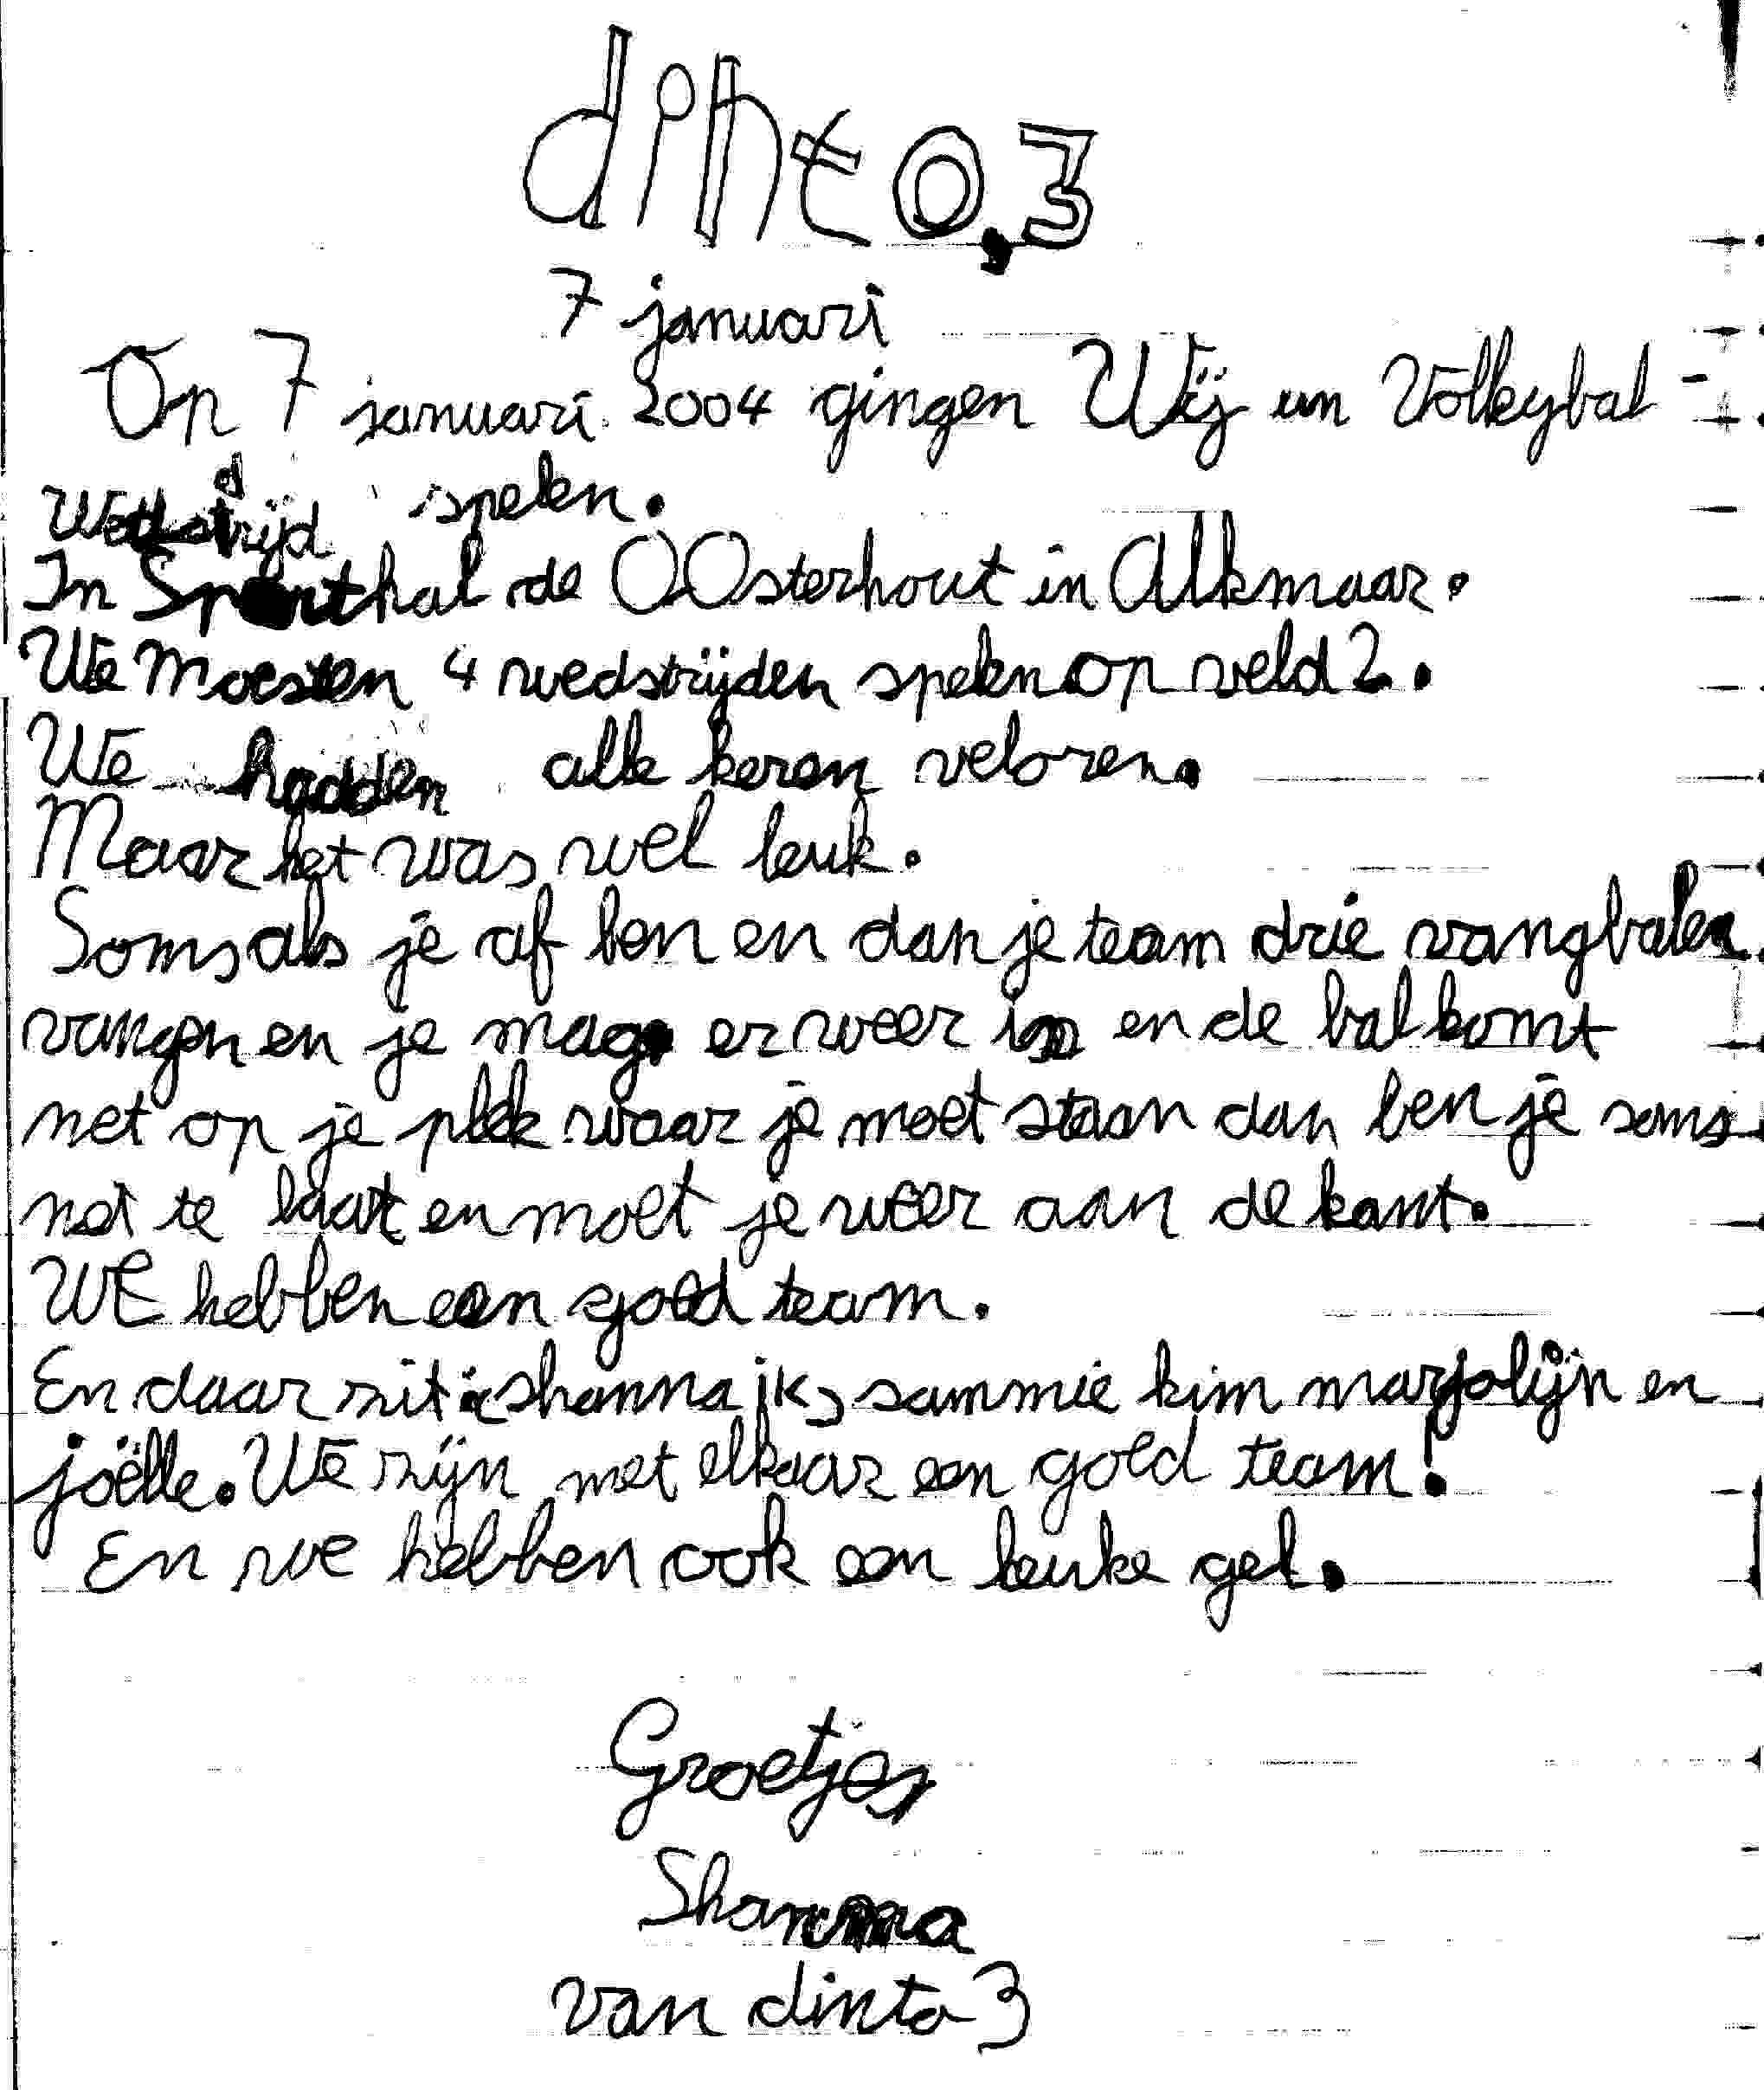 dinto.3
7 januari
Op 7 januari. 2004 gingen Wij een Volleybal -
Wedstrijd spelen.
In Sporthal de OOsterhout in Alkmaar.
We Moesten 4 wedstrijden spelen op veld 2.
We hadden alle keren veloren.
Maar het was wel leuk.
Soms als je af ben en dan je team drie vangbalen
vangen en je mag er weer in en de bal komt
net op je plek waar je moet staan dan ben je soms
net te laat en moet je weer aan de kant.
WE hebben een goed team.
En daar zit shanna ik, sammie kim marjolijn en
joëlle. We zijn met elkaar een goed team!
En we hebben ook een leuke gel.
Groetjes
Shanna
van dinto 3